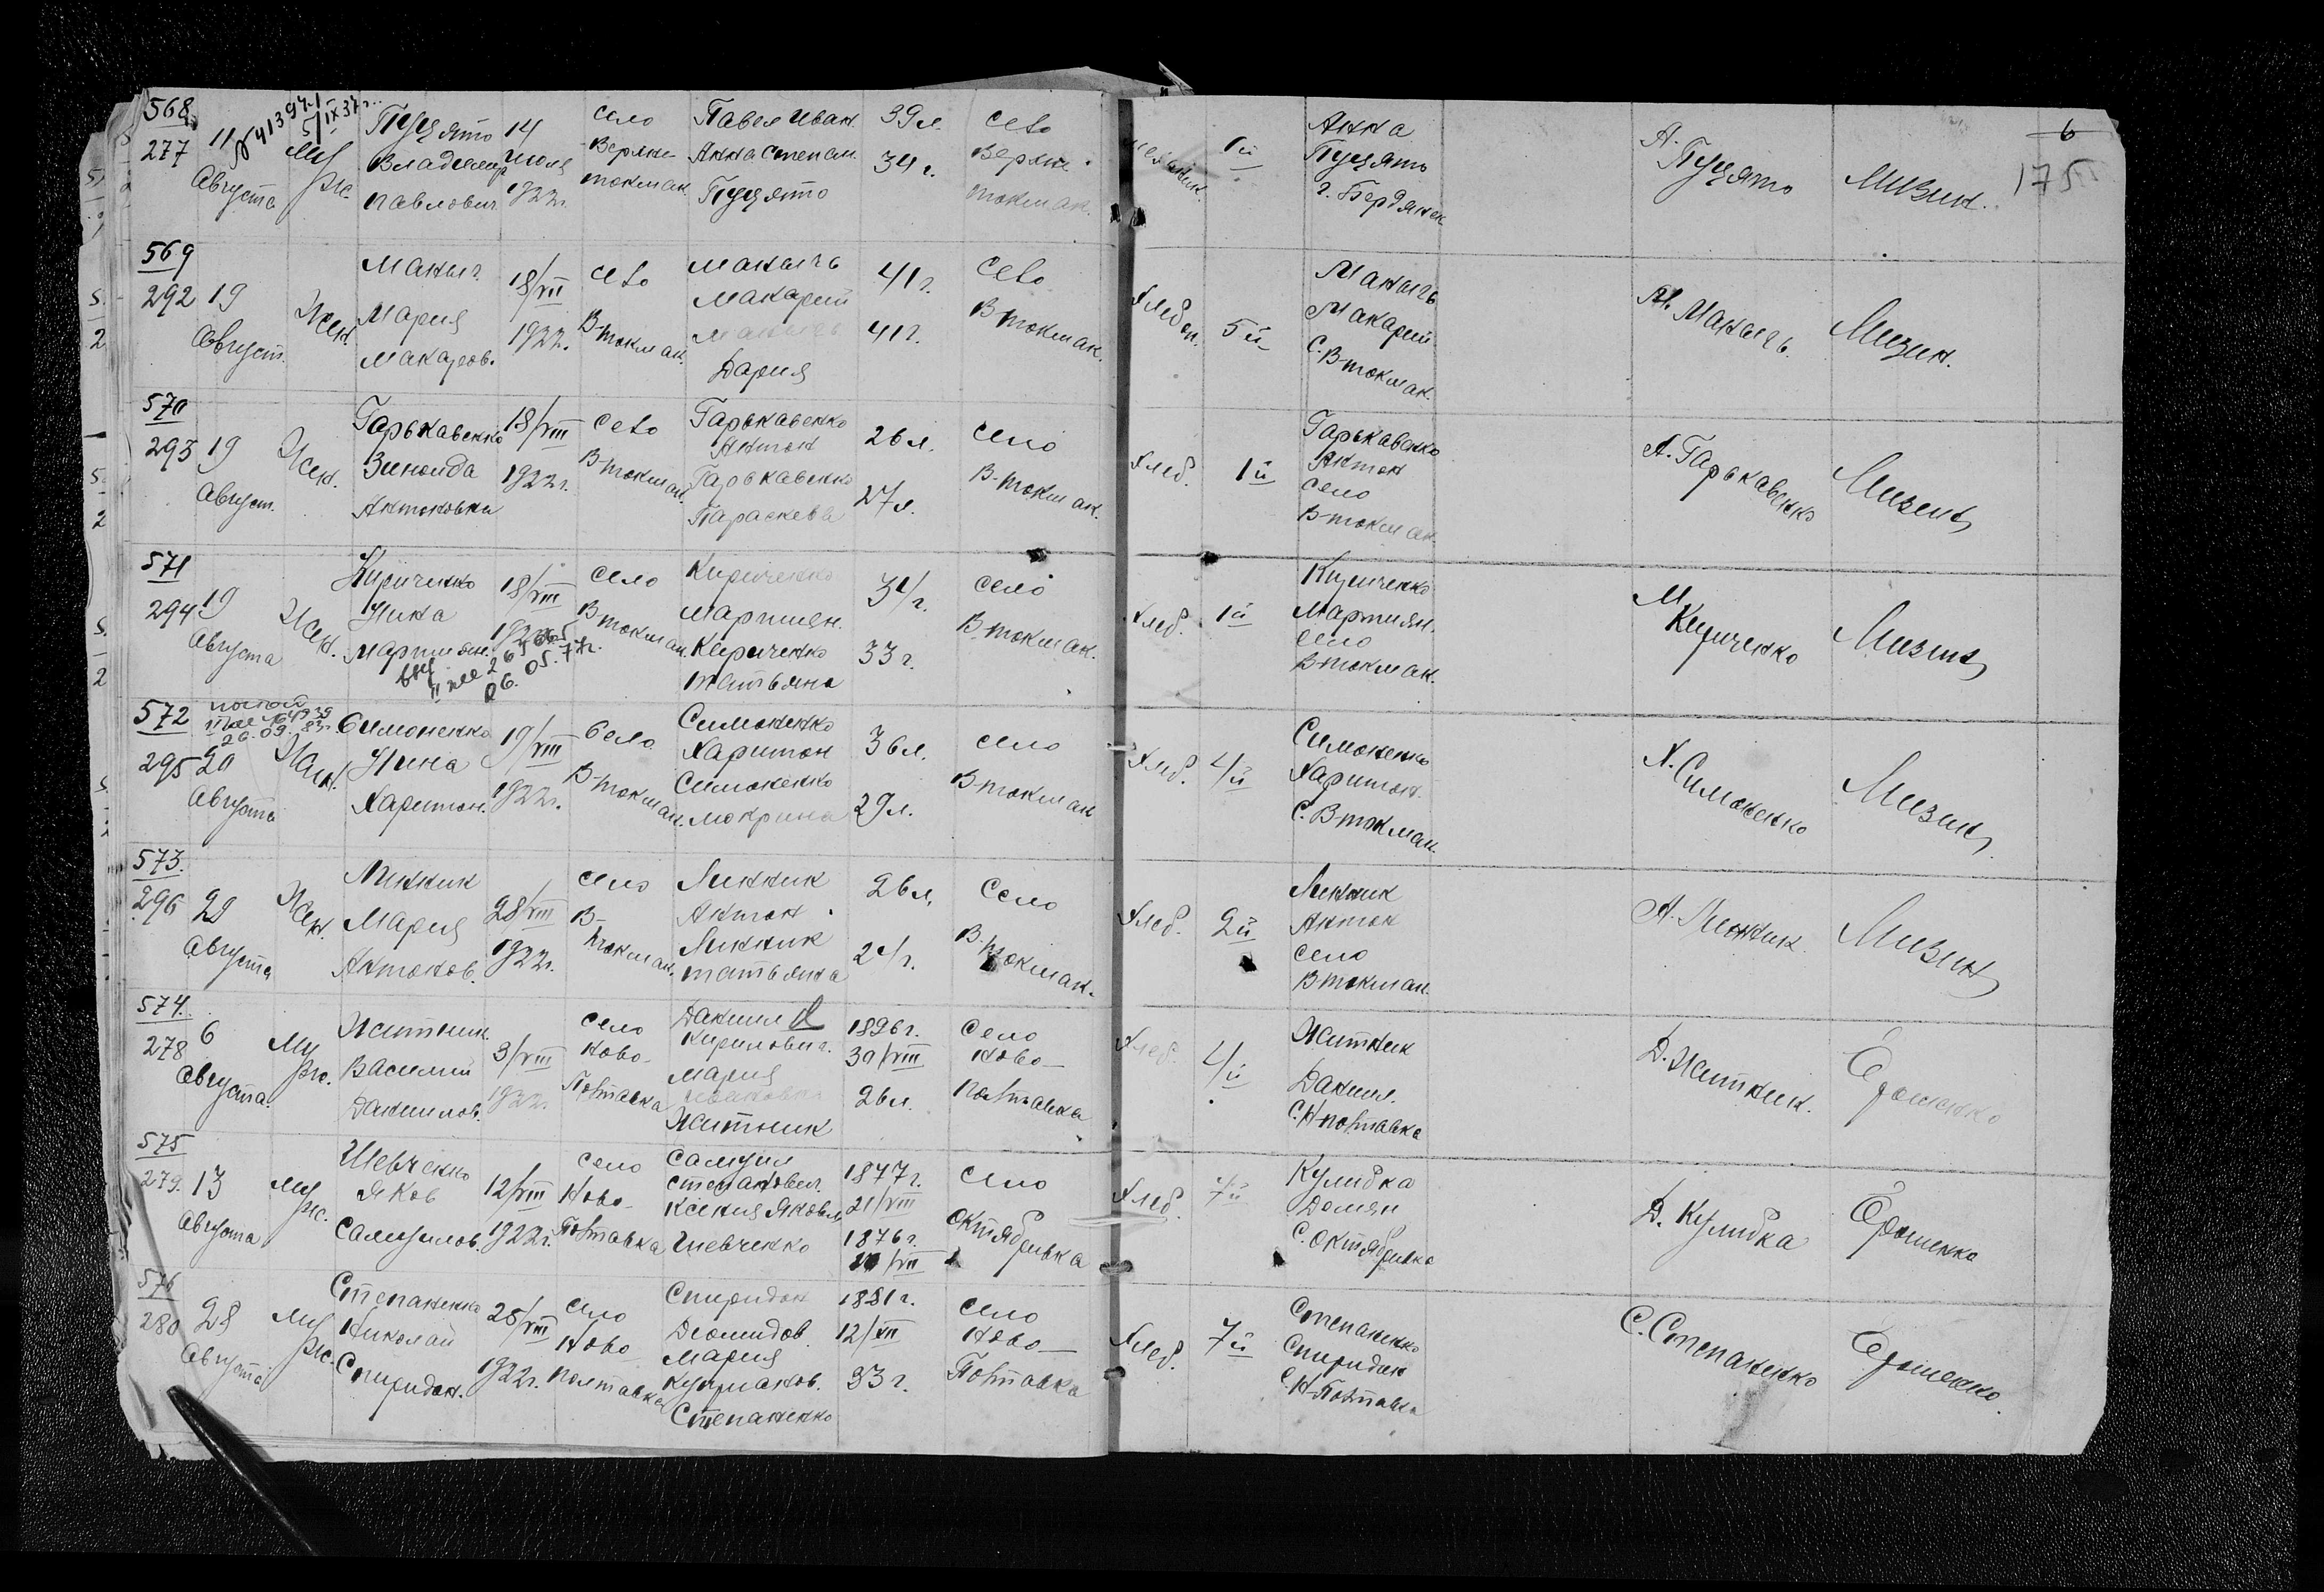 568.
277
11
Августа
№ 41394
5/IX 37 г.
Муж.
Пуцято
Владимир
Павлович
14
Июля
1922 г.
село
Верхне-
токмак
Павел Иван.
Анна Степан.
Пуцято
39 л.
34 г.
село
Верхне-
токмак.
1й
Анна
Пуцято
г. Бердянск
А.
Пуцято
Мизин.
6
175
569
292
19
Август.
Жен.
Макыч.
Мария
Макаров.
18/VII
1922.
село
В-токмак.
Макычь
Макарий
Макычь
Дария
41 г.
41 г.
село
В-токмак.
Хлебоп.
5й
Макычь
Макарий
С. В-токмак.
М. Макычь.
Мизин.
570
293
19
Август.
Жен.
Гарькавенко
Зиноида
Антоновна
18/VIII
1922 г.
село
В-токмак.
Гарькавенко
Антон
Гарькавенко
Параскева
26 л.
27 л.
село
В-токмак.
Хлеб.
1й
Гарькавенко
Антон
село
В-токмак.
А. Гарькавенко
Мизин
571
294
19
Августа
Жен.
Кириченко
Нина
Мартиян.
18/VIII
06.05.77г.
село
В-токмак.
Кириченко
Мартиян.
Кириченко
Татьяна
34 г.
33 г.
село
В-токмак.
Хлеб.
1й
Кириченко
Мартиян.
село
В-токмак.
М
Кириченко
Мизин
572
295
20
Августа
26.09.83г.
Жен.
Симоненко
Нина
Харитон.
19/VIII
1922 г.
село
В-токмак.
Симоненко
Харитон
Симоненко
Мокрина
36 л.
29 л.
село
В-токмак
Хлеб.
4й
Симоненко
Харитон.
С. В-токмак.
Х. Симоненко
Мизин
573.
296
29
Августа
Жен.
Линник
Мария
Антонов.
28/VIII
1922 г.
село
В-
токмак.
Линник
Антон
Линник
Татьяна
26 л.
24 г.
Село
В-токмак.
Хлеб.
2й
Линник
Антон
село
В-токмак.
А. Линник.
Мизин
574.
278
6
Августа.
Муж.
Житник.
Василий
Данилов.
3/VIII
1922 г.
село
Ново-
Полтавка
Данил
Кирилович.
Мария
Житник
1896 г.
30/VIII
26 л.
Село
Ново-
Полтавка
Хлеб.
4й
Житник
Данил.
С. Н-полтавка
Д. Житник.
Ерошенко
575
279.
13
Августа
Муж.
Шевченко
Яков
Самуилов.
12/VIII
1922 г.
село
Ново-
Полтавка
Самуил
Степанович.
Ксения Яковл.
Шевченко
1847 г.
21/VIII
1876 г.
село
Октябривка
Хлеб.
7й
Кулидка
Демян
С. Октябривка
Д. Кулидка
Ерошенко
576
280
28
Августа
Муж.
Степаненко
Николай
Спиридон.
25/VIII
1922 г.
село
Ново
полтавка
Спиридон
Диомидов.
Мария
Степаненко
1881 г.
12/XII
33 г.
село
Ново-
Полтавка
Хлеб.
7й
Степаненко
Спиридон
С. Н-Полтавка
С. Степаненко
Ерошенко.